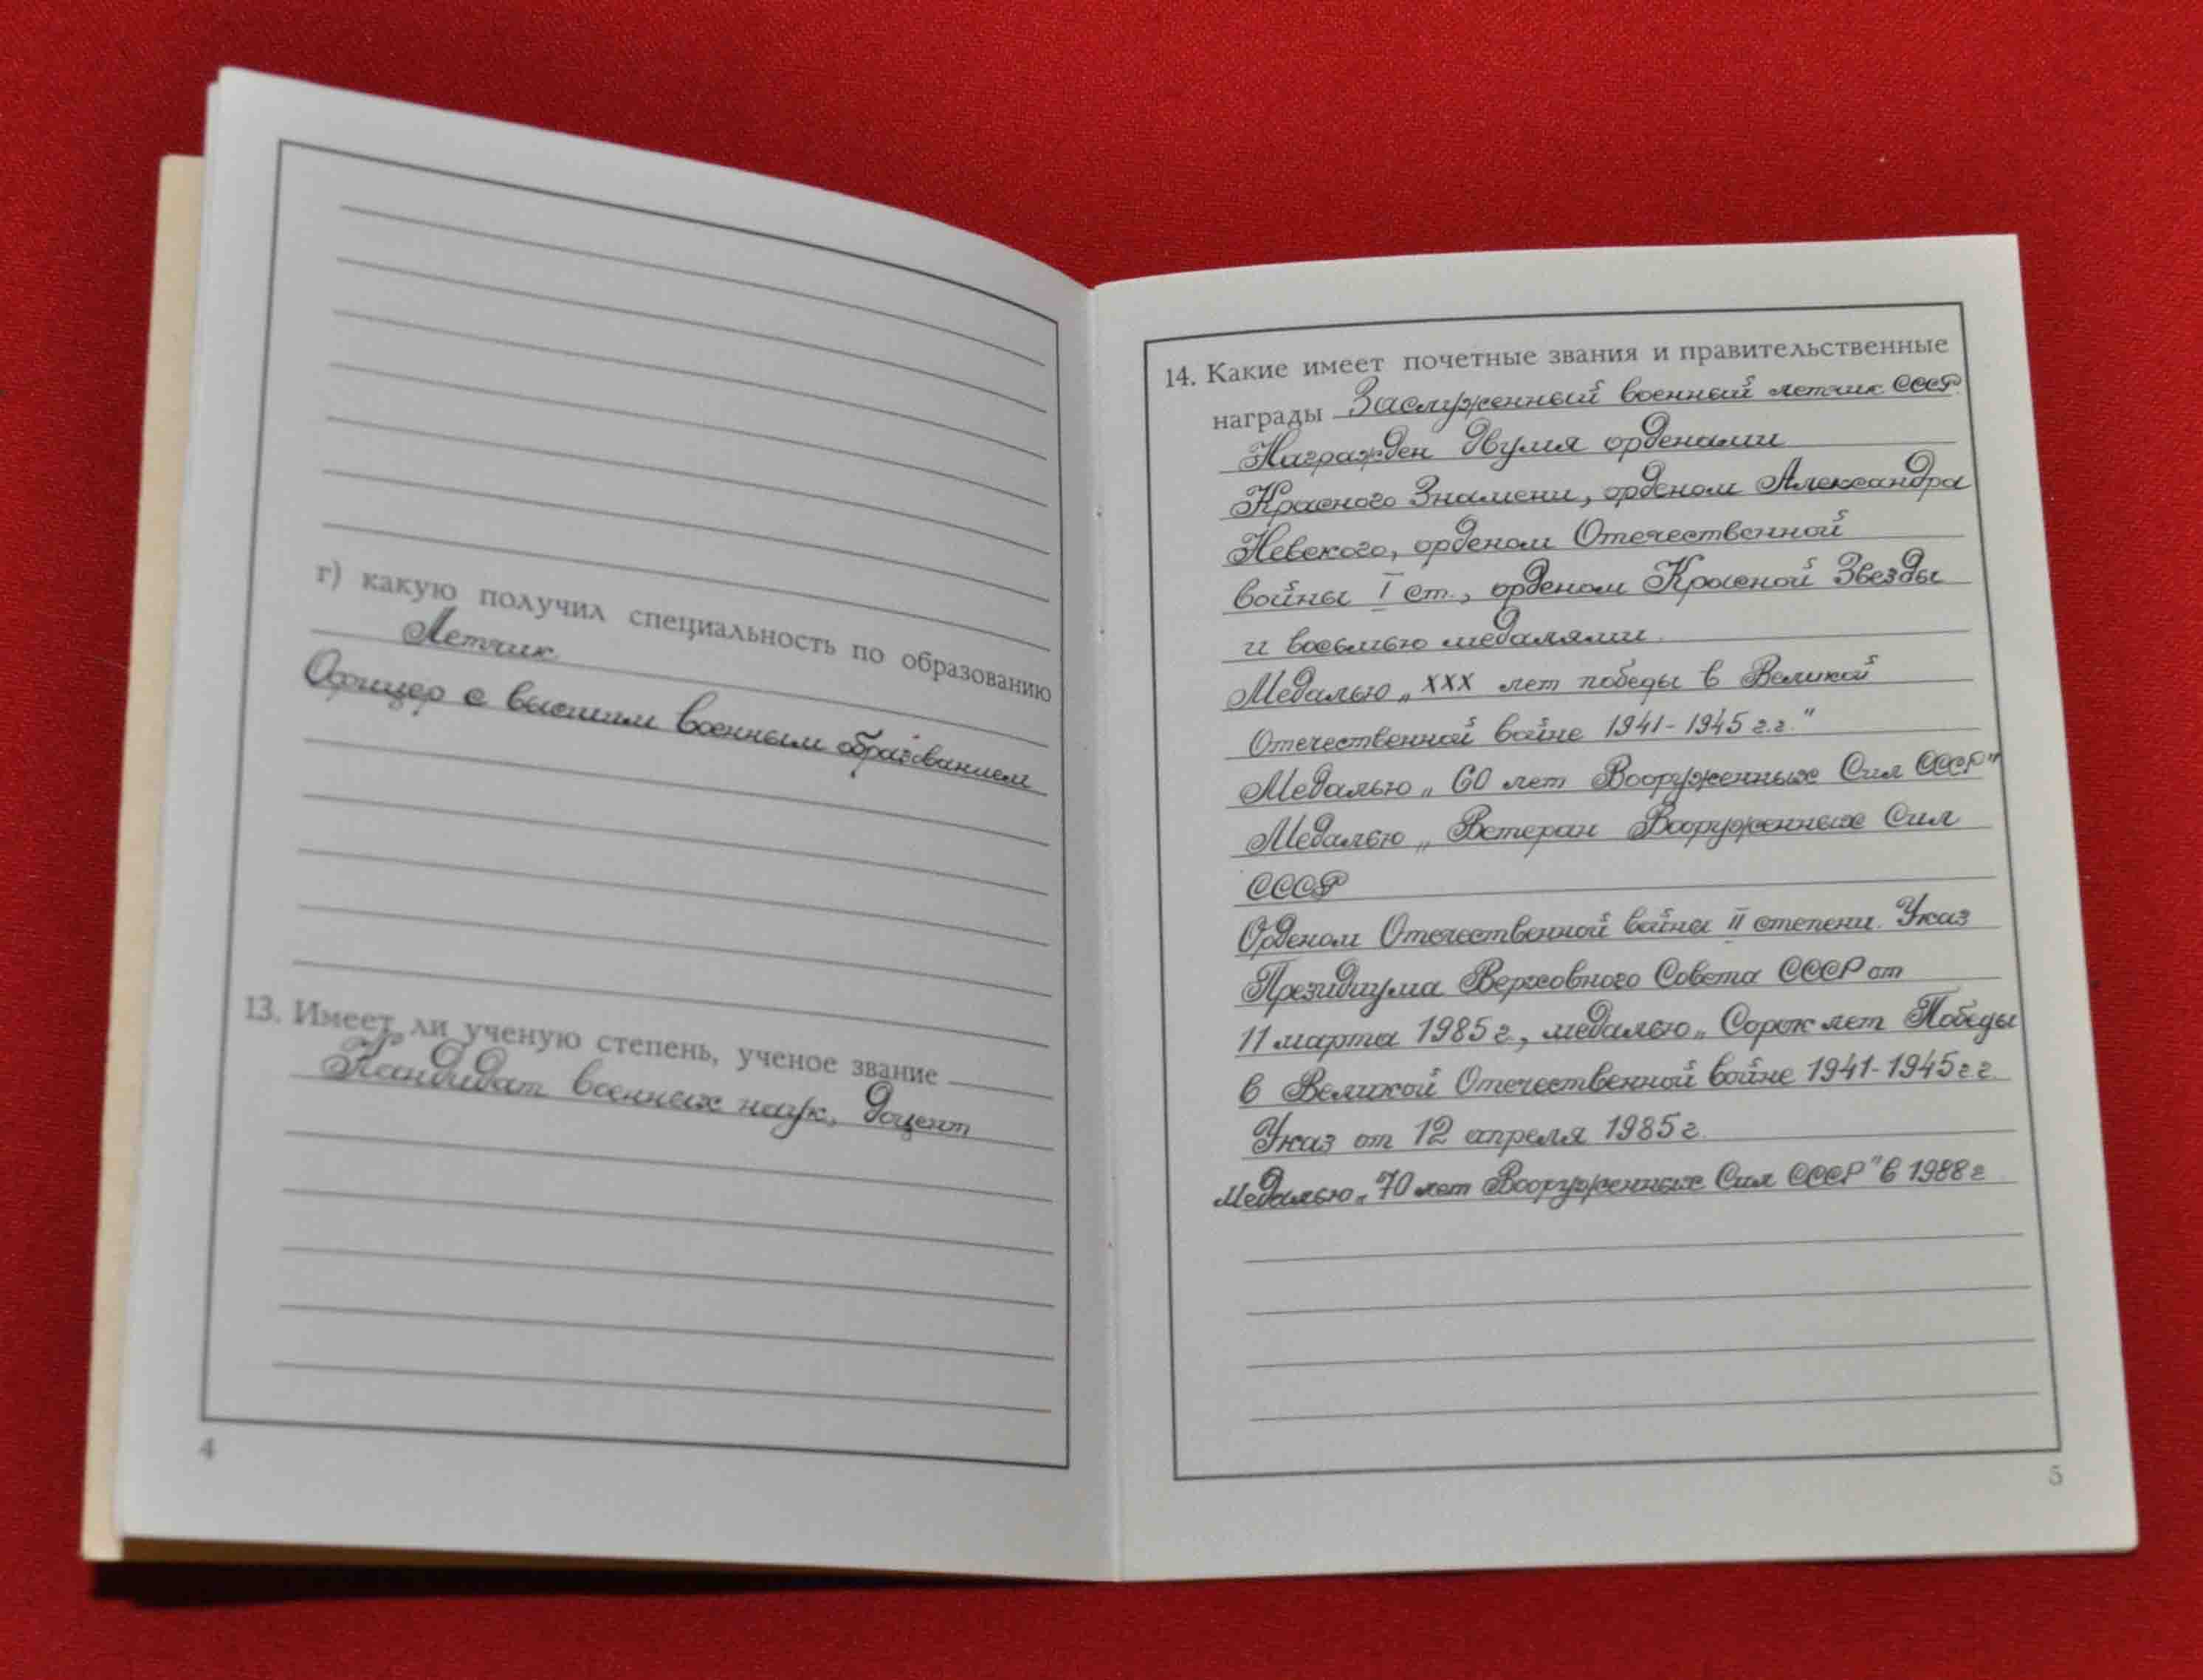 г) какую получил специальность по образованию
Летчик.
Офицер с высшим военным образованием
13. Имеет ли ученую степень, ученое звание
Кандидат военных наук, доцент
4
14. Какие имеет почетные звания и правительственные
награды Заслуженный военный летчик СССР.
Награжден двумя орденами
Красного Знамени, орденом Александра
Невского, орденом Отечественной
войны I ст., орденом Красной Звезды
и восьмью медалями.
Медалью „XXX лет победы в Великой
Отечественной войне 1941-1945 г.г."
Медалью „60 лет Вооруженных Сил СССР"
Медалью „Ветеран Вооруженных Сил
СССР
Орденом Отечественной войны II степени. Указ
Президиума Верховного Совета СССР от
11 марта 1985 г., медалью „Сорок лет Победы
в Великой Отечественной войне 1941-1945 г.г.
Указ от 12 апреля 1985 г.
Медалью „70 лет Вооруженных Сил СССР" в 1988 г
5